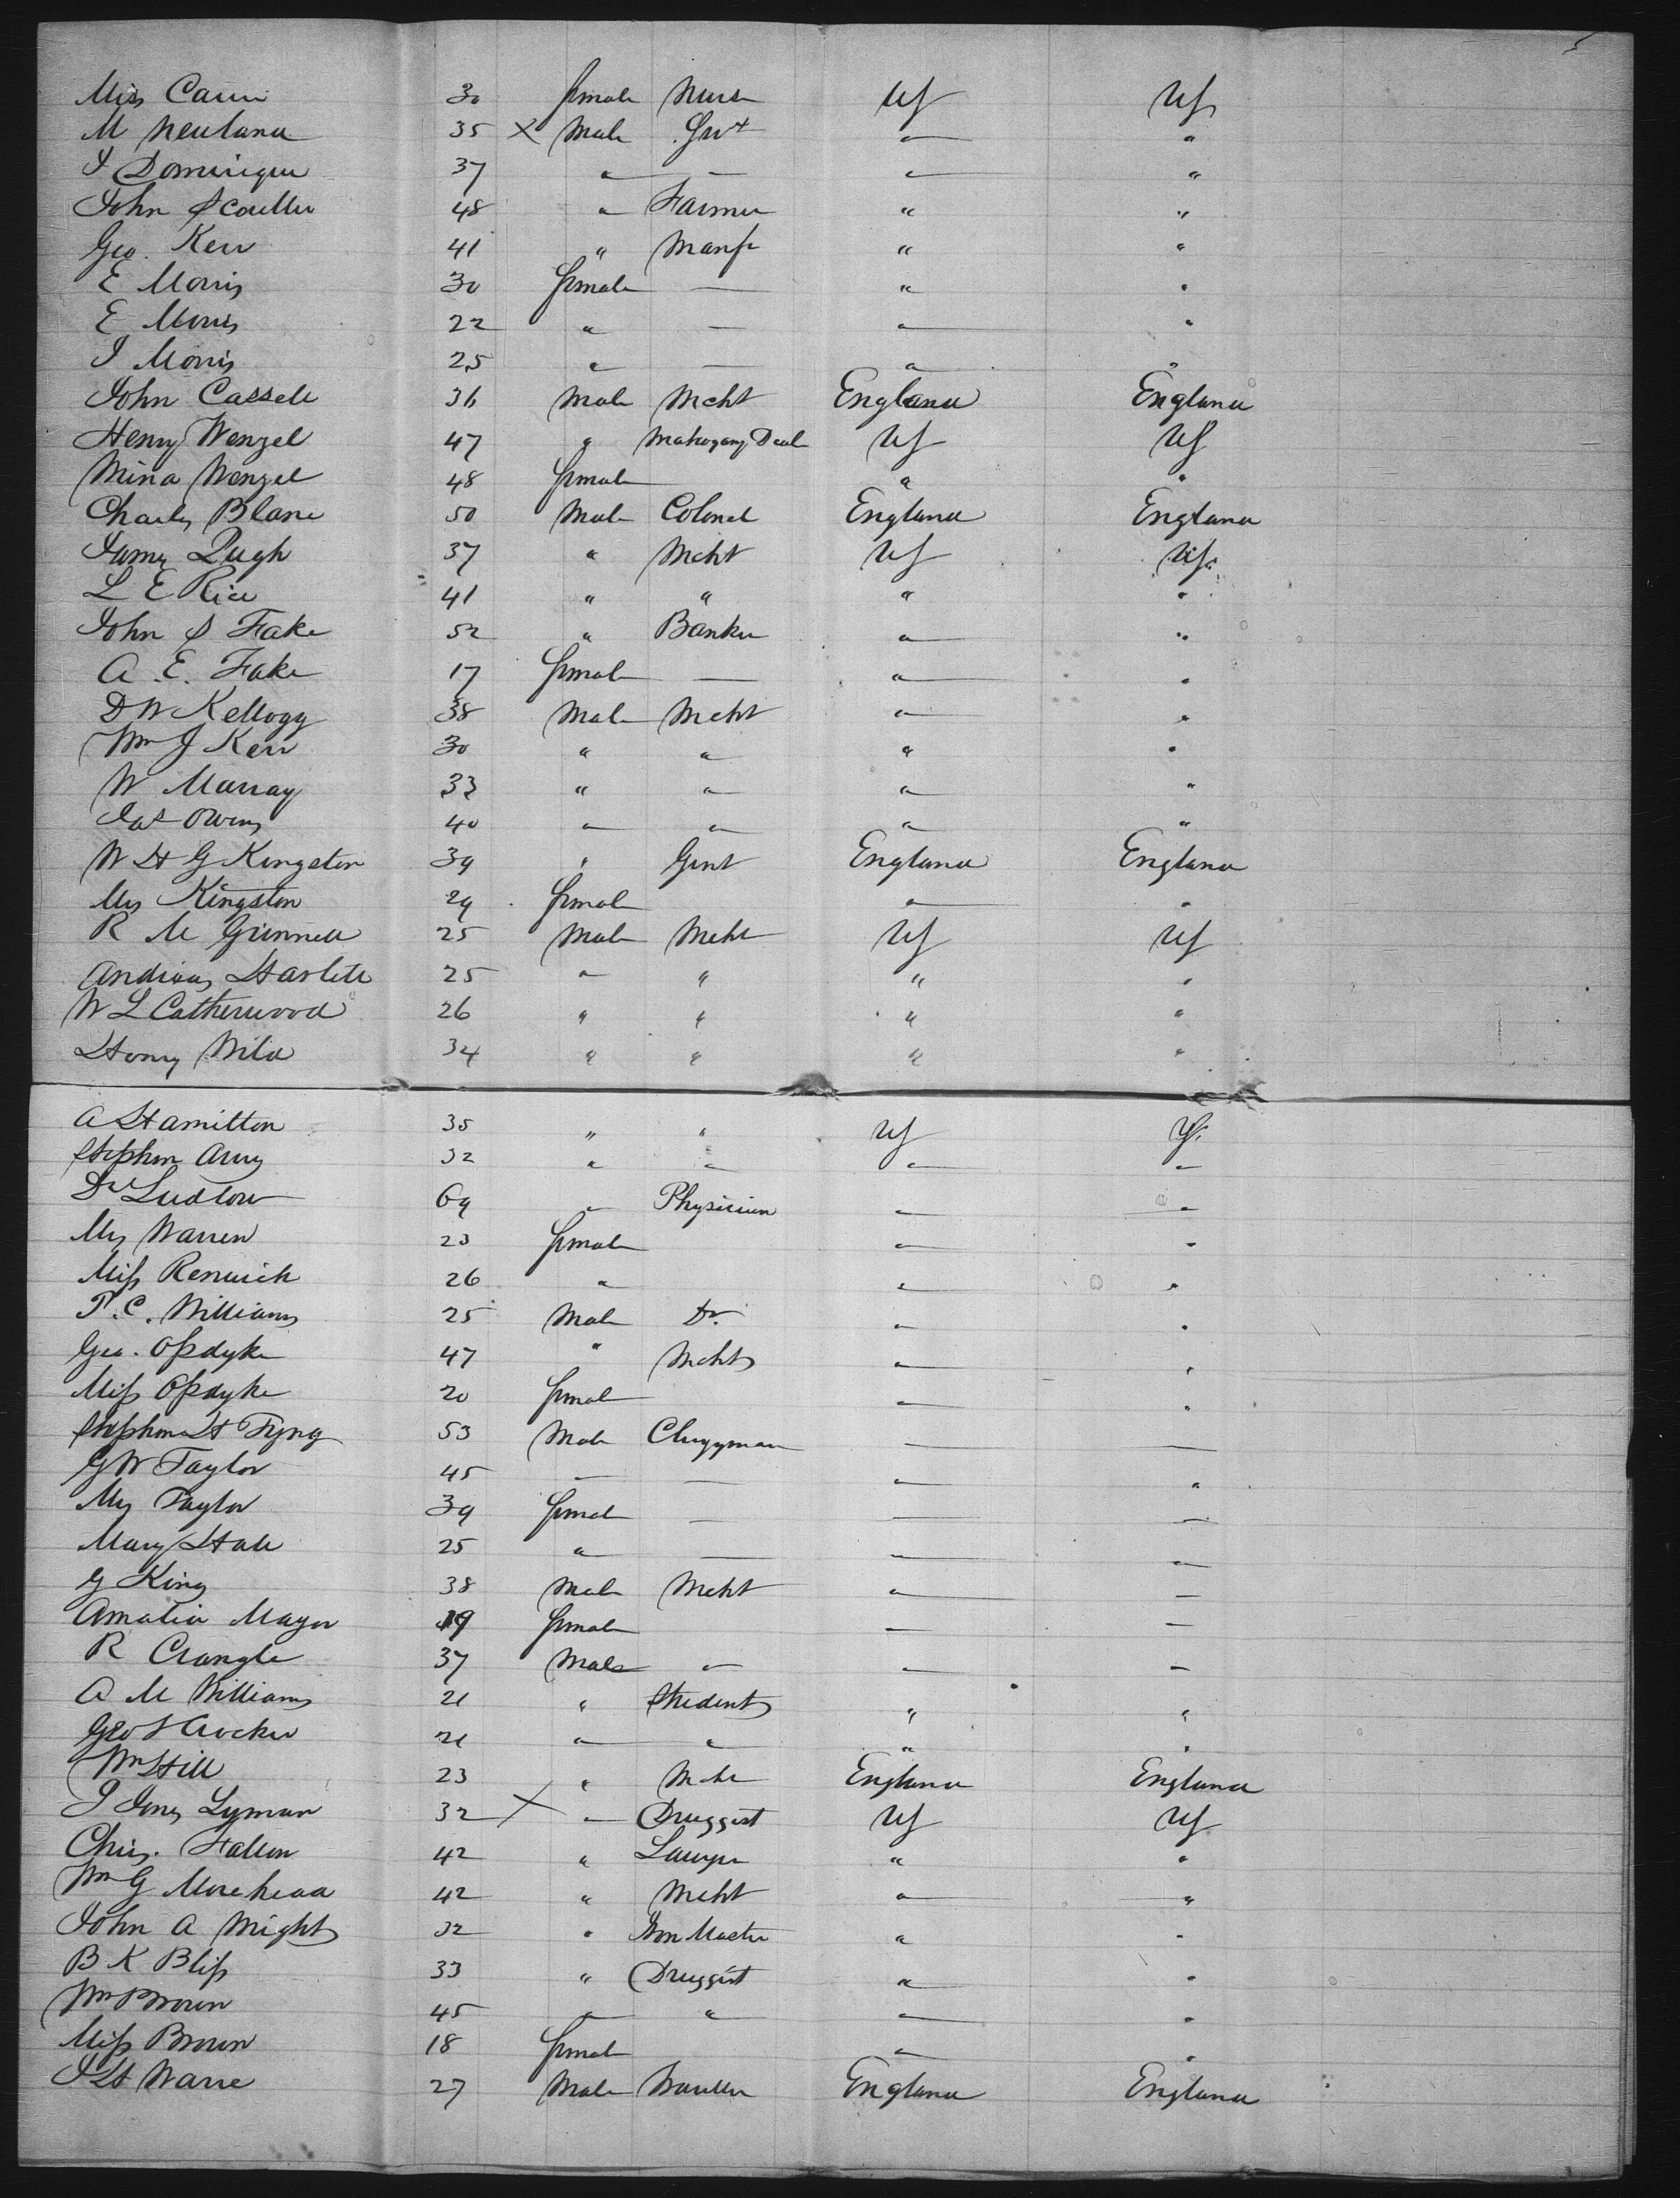 5
Miss 30 female Nurse US US
M 35 X Male Svt " "
J Dominique 37 " — " "
John Scouller 48 " Farmer " "
Geo. Kerr 41 " Manfr " "
E Morris 30 female — " "
E Morris 22 " — " "
J Morris 25 " — " "
John Cassell 36 Male Mcht England England
Henry Wenzel 47 " Mahogany Deal US US
Mina Wenzel 48 female " "
Charles Blane 50 Male Colonel England England
James Pugh 37 " Mcht US US
L E Rice 41 " " " "
John S Fake 52 " Banker " "
A. E. Fake 17 female — " "
D W Kellogg 38 Male Mcht " "
Wm J Kerr 30 " " " "
W Murray 33 " " " "
Jas Owens 40 " " " "
W H G Kingston 39 " Gent England England
Mrs Kingston 29 female " "
R M Grinnell 25 Male Mcht US US
Andreas 25 " " " "
W L Catherwood 26 " " " "
Henry Wild 34 " " " "
A Hamilton 35 " " US US
Stephen 32 " " " "
Dr Ludlow 69 " Physician " "
Mrs Warren 23 female " "
Miss Renwick 26 " " "
T. C. Williams 25 Male Dr. " "
Geo. Opdyke 47 " Mcht " "
Miss Opdyke 20 female " "
Stephen H Tyng 53 Male Clergyman — —
G W Taylor 45 — — " "
Mrs Taylor 39 female — — —
Mary Hale 25 " — — "
G King 38 Male Mcht " —
Amalia Mayer 19 female — —
R Crangle 37 Male " — —
A M Williams 21 " Student " "
Geo S Crocker 21 " " " "
Wm Hill 23 " Mcht England England
J Jones Lyman 32 X " Druggist US US
Chris. Fallon 42 " Lawyer " "
Wm G Morehead 42 " Mcht " "
John A Wright 32 " Iron Master " "
B K Bliss 33 " Druggist " "
Wm Brown 45 " " " "
Miss Brown 18 female " "
J H Warre 27 Male Traveller England England